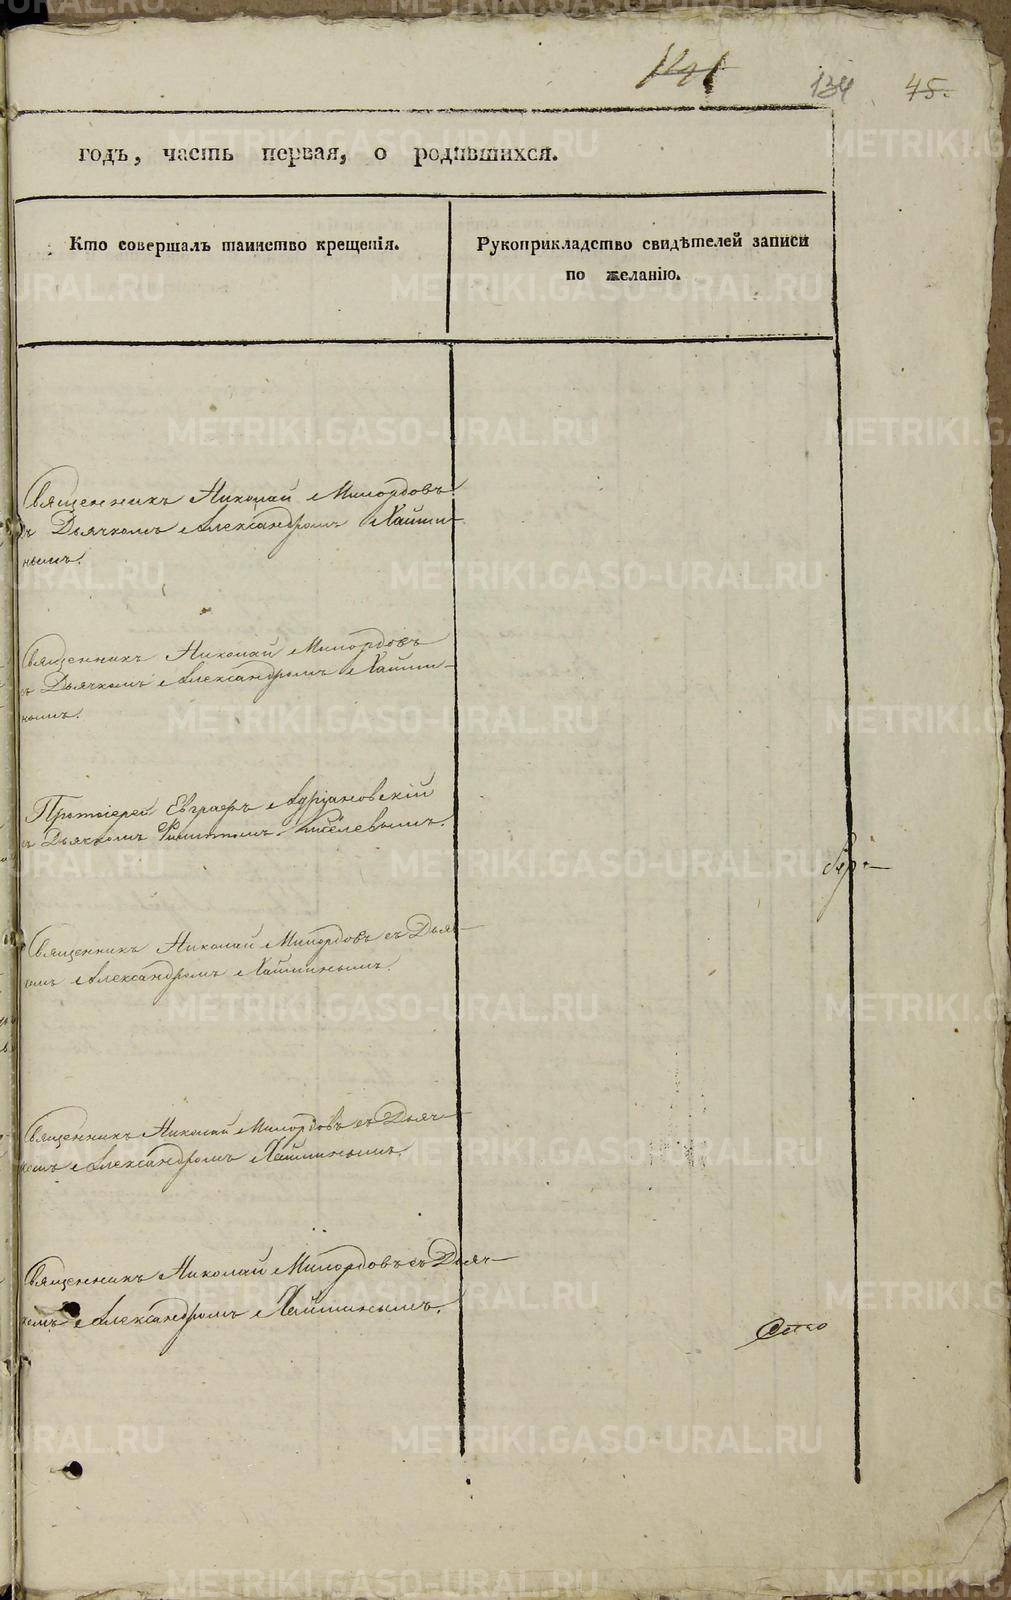 141 134 45.
годъ, часть первая, о родившихся.
Кто совершалъ таинство крещенія.
Рукоприкладство свидѣтелей записи
по желанію.
Священникъ Николай Милордовъ
съ Дьячкомъ Александромъ Хайми-
нымъ.
Священникъ Николай Милордовъ
съ Дьячкомъ Александромъ Хайми-
нымъ.
Протоіерей Евграфъ Адріановскій
съ Дьячкомъ Филиппомъ Киселевымъ.
Священникъ Николай Милордовъ съ Дьяч-
комъ Александромъ Хайминымъ.
Священникъ Николай Милордовъ съ Дьяч-
комъ Александромъ Хайминымъ.
Священникъ Николай Милордовъ съ Дьяч-
комъ Александромъ Хайминымъ.
METRIKI.GASO-URAL.RU